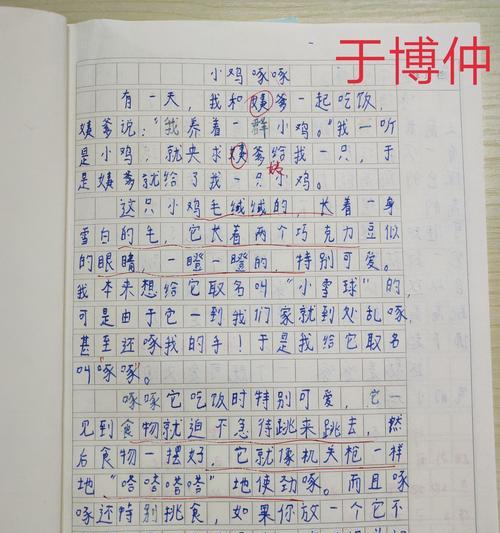 于博仲
小鸡啄啄
有一天，我和姨爹一起吃饭，
姨爹说：“我养着一群小鸡。”我一听
是小鸡，就央求姨爹给我一只，于
是姨爹就给了我一只小鸡。
这只小鸡毛绒绒的，长着一身
雪白的毛，它长着两个巧克力豆似
的眼睛，一瞪一瞪的，特别可爱。
我本来想给它取名叫“小雪球”的，
可是由于它一到我们家就到处乱啄，
甚至还啄我的手！于是我给它取名
叫“啄啄”。
啄啄它吃饭时特别可爱，它一
见到食物就迫不急待跳来跳去，然
后食物一摆好，它就像机关枪一样
地“嗒嗒嗒嗒”地使劲啄。而且啄
啄还特别挑食，如果你放一个它不